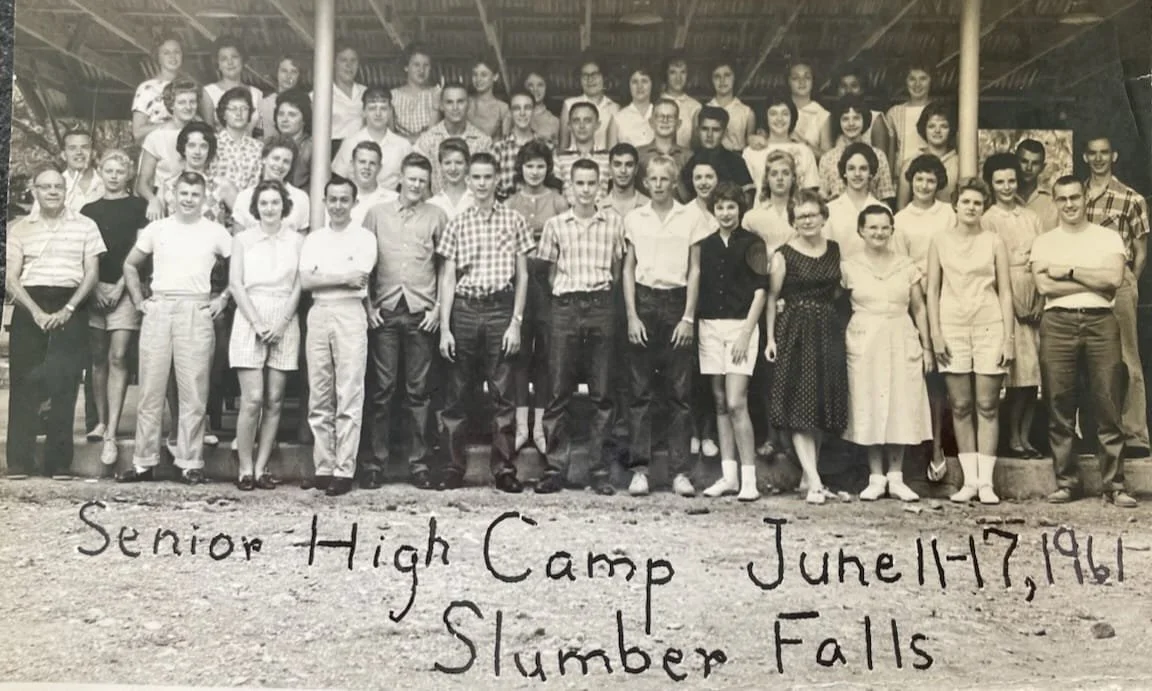 Senior High Camp June 11-17, 1961
Slumber Falls